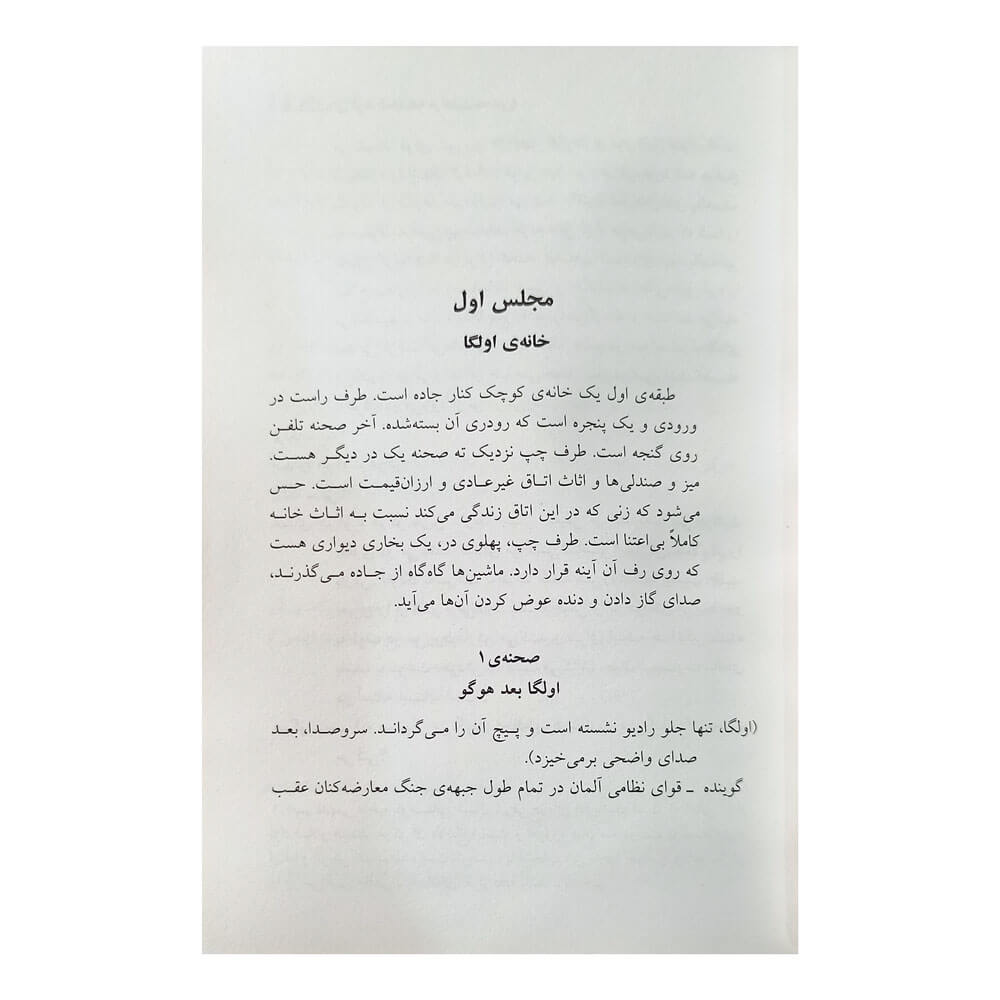 مجلس اول
خانه‌ی اولگا
طبقه‌ی اول یک خانه‌ی کوچک کنار جاده است. طرف راست در
ورودی و یک پنجره است که رودری آن بسته‌شده. آخر صحنه تلفن
روی گنجه است. طرف چپ نزدیک ته صحنه یک در دیگر هست.
میز و صندلی‌ها و اثاث اتاق غیرعادی و ارزان‌قیمت است. حس
می‌شود که زنی که در این اتاق زندگی می‌کند نسبت به اثاث خانه
کاملاً بی‌اعتنا است. طرف چپ، پهلوی در، یک بخاری دیواری هست
که روی رف آن آینه قرار دارد. ماشین‌ها گاه‌گاه از جاده می‌گذرند،
صدای گاز دادن و دنده عوض کردن آن‌ها می‌آید.
صحنه‌ی ۱
اولگا بعد هوگو
(اولگا، تنها جلو رادیو نشسته است و پیچ آن را می‌گرداند. سروصدا، بعد
صدای واضحی برمی‌خیزد).
گوینده ـ قوای نظامی آلمان در تمام طول جبهه‌ی جنگ معارضه‌کنان عقب